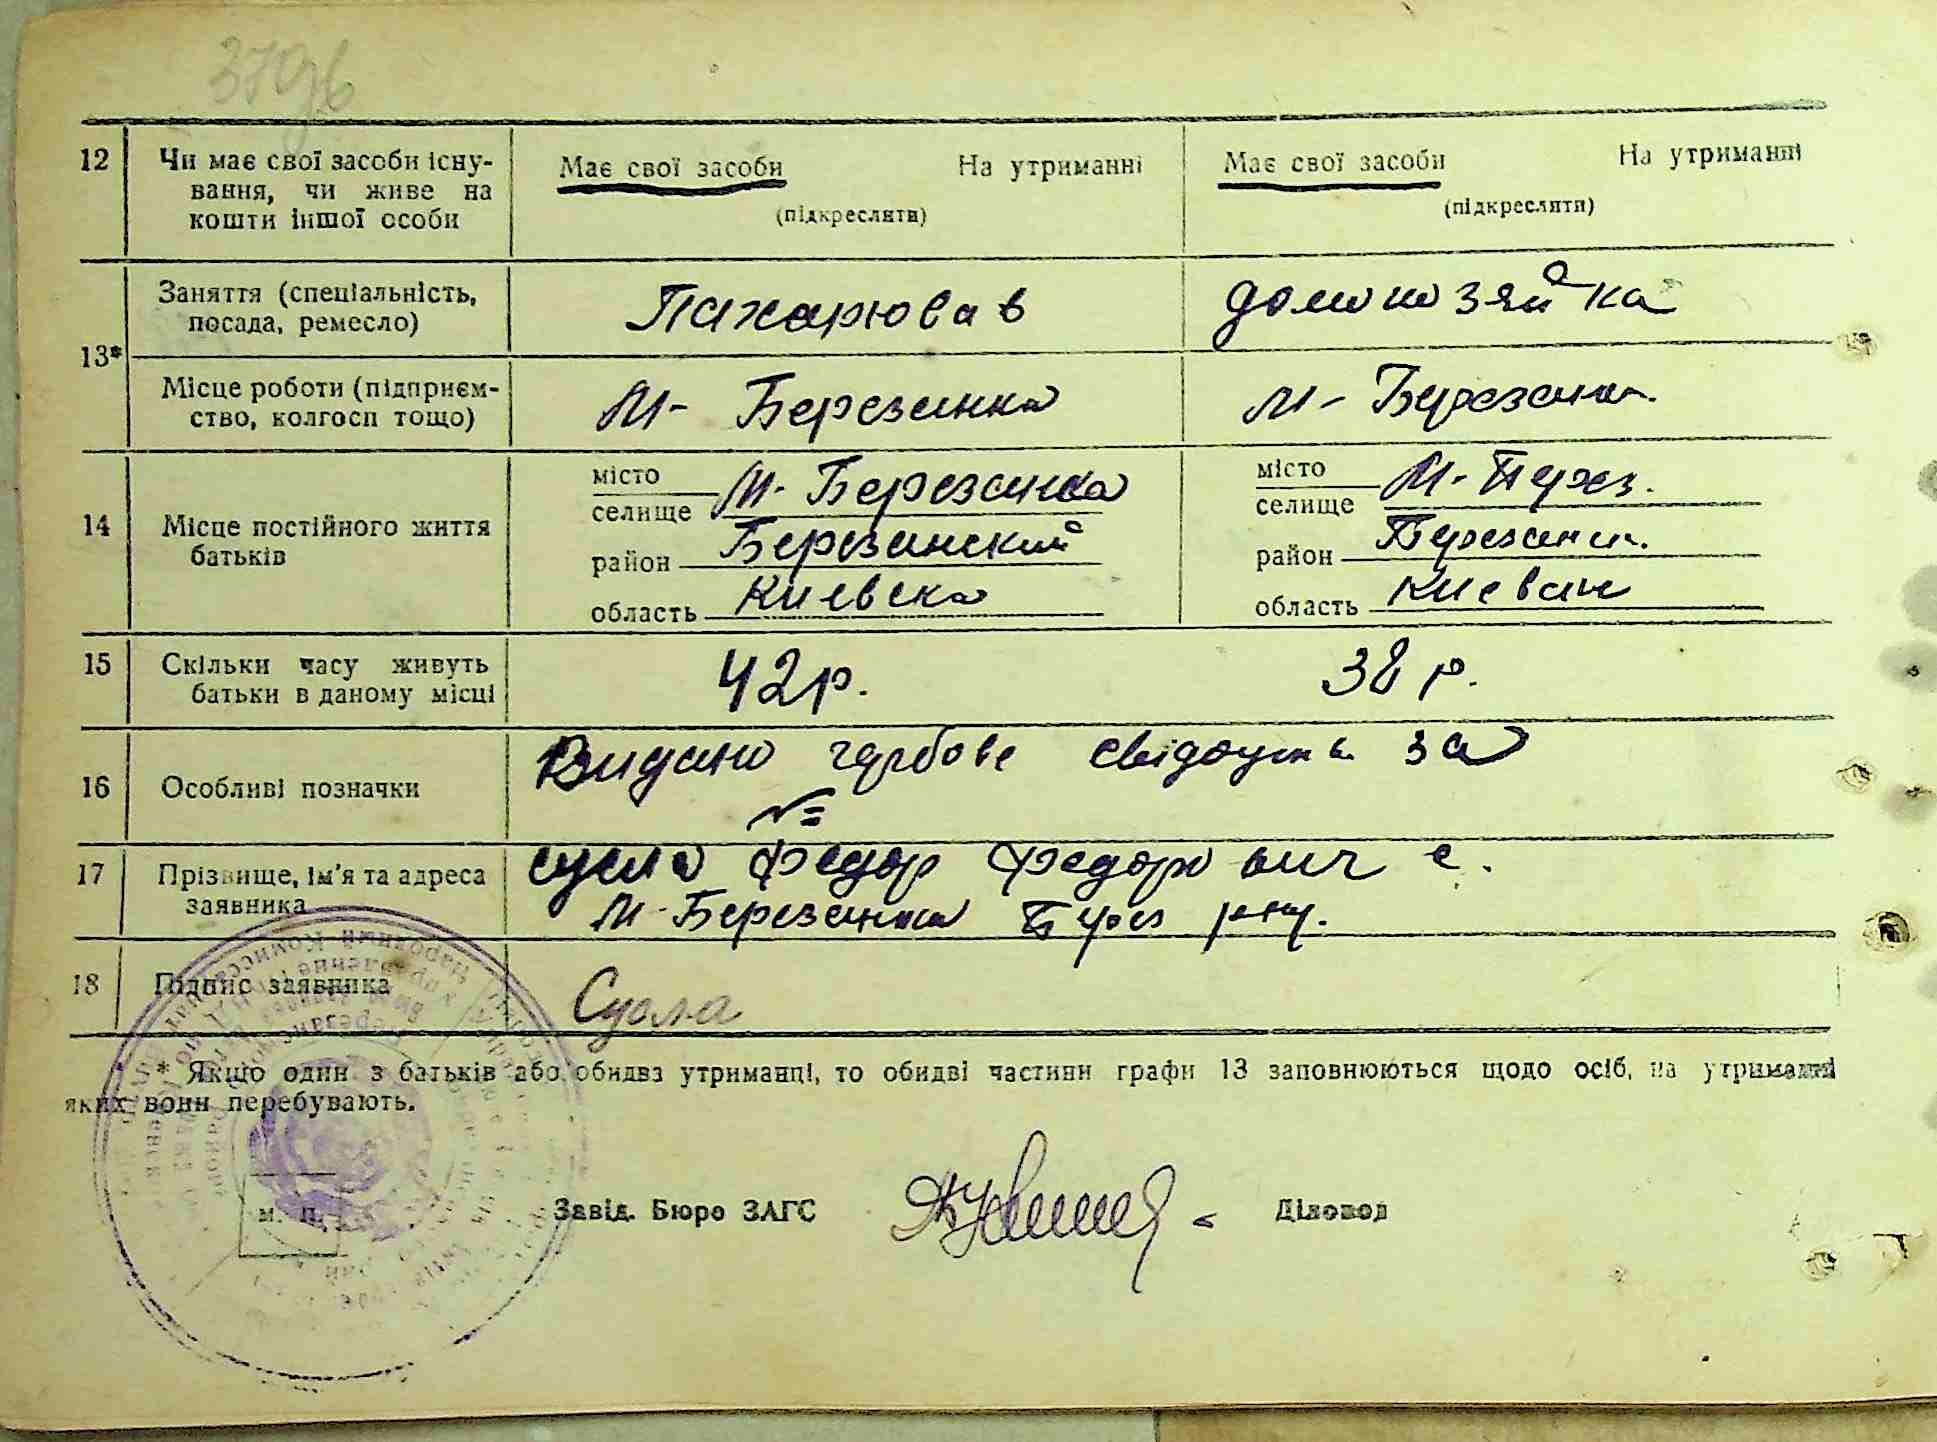 12 Чи має свої засоби існу-
вання, чи живе на
кошти іншої особи
Має свої засоби На утриманні
(підкреслити)
Має свої засоби На утриманні
(підкреслити)
13*
Заняття (спеціальність,
посада, ремесло)
Пажарював
домохозяйка
Місце роботи (підприєм-
ство, колгосп тощо)
м- Березанка
м- Березанк.
14 Місце постійного життя
батьків
місто
селище м- Березанка
район Березанский
область Киевска
місто
селище м- Берез.
район Березанск.
область Киевск
15 Скільки часу живуть
батьки в даному місці
42 р. 38 р.
16 Особливі позначки
Видано гербове свідоцтв за
№
17 Прізвище, ім'я та адреса
заявника
Сусла Федор Федорович с.
м- Березанка Берез
18 Підпис заявника
Сусла
* Якщо один з батьків або обидва утриманці, то обидві частини графи 13 заповнюються щодо осіб, на утриманні
яких вони перебувають.
м. п.
Завід. Бюро ЗАГС Діловод